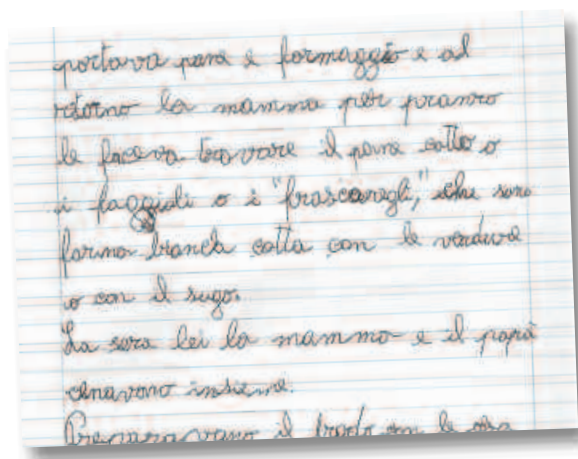 portava pane e formaggio e al
ritorno la mamma per pranzo
le faceva trovare il pane cotto o
i faggioli o i "frascaregli," che sono
farina bianca cotta con le verdure
o con il sugo.
La sera lei la mamma e il papà
cenavono insieme.
Preparavano il brodo con le